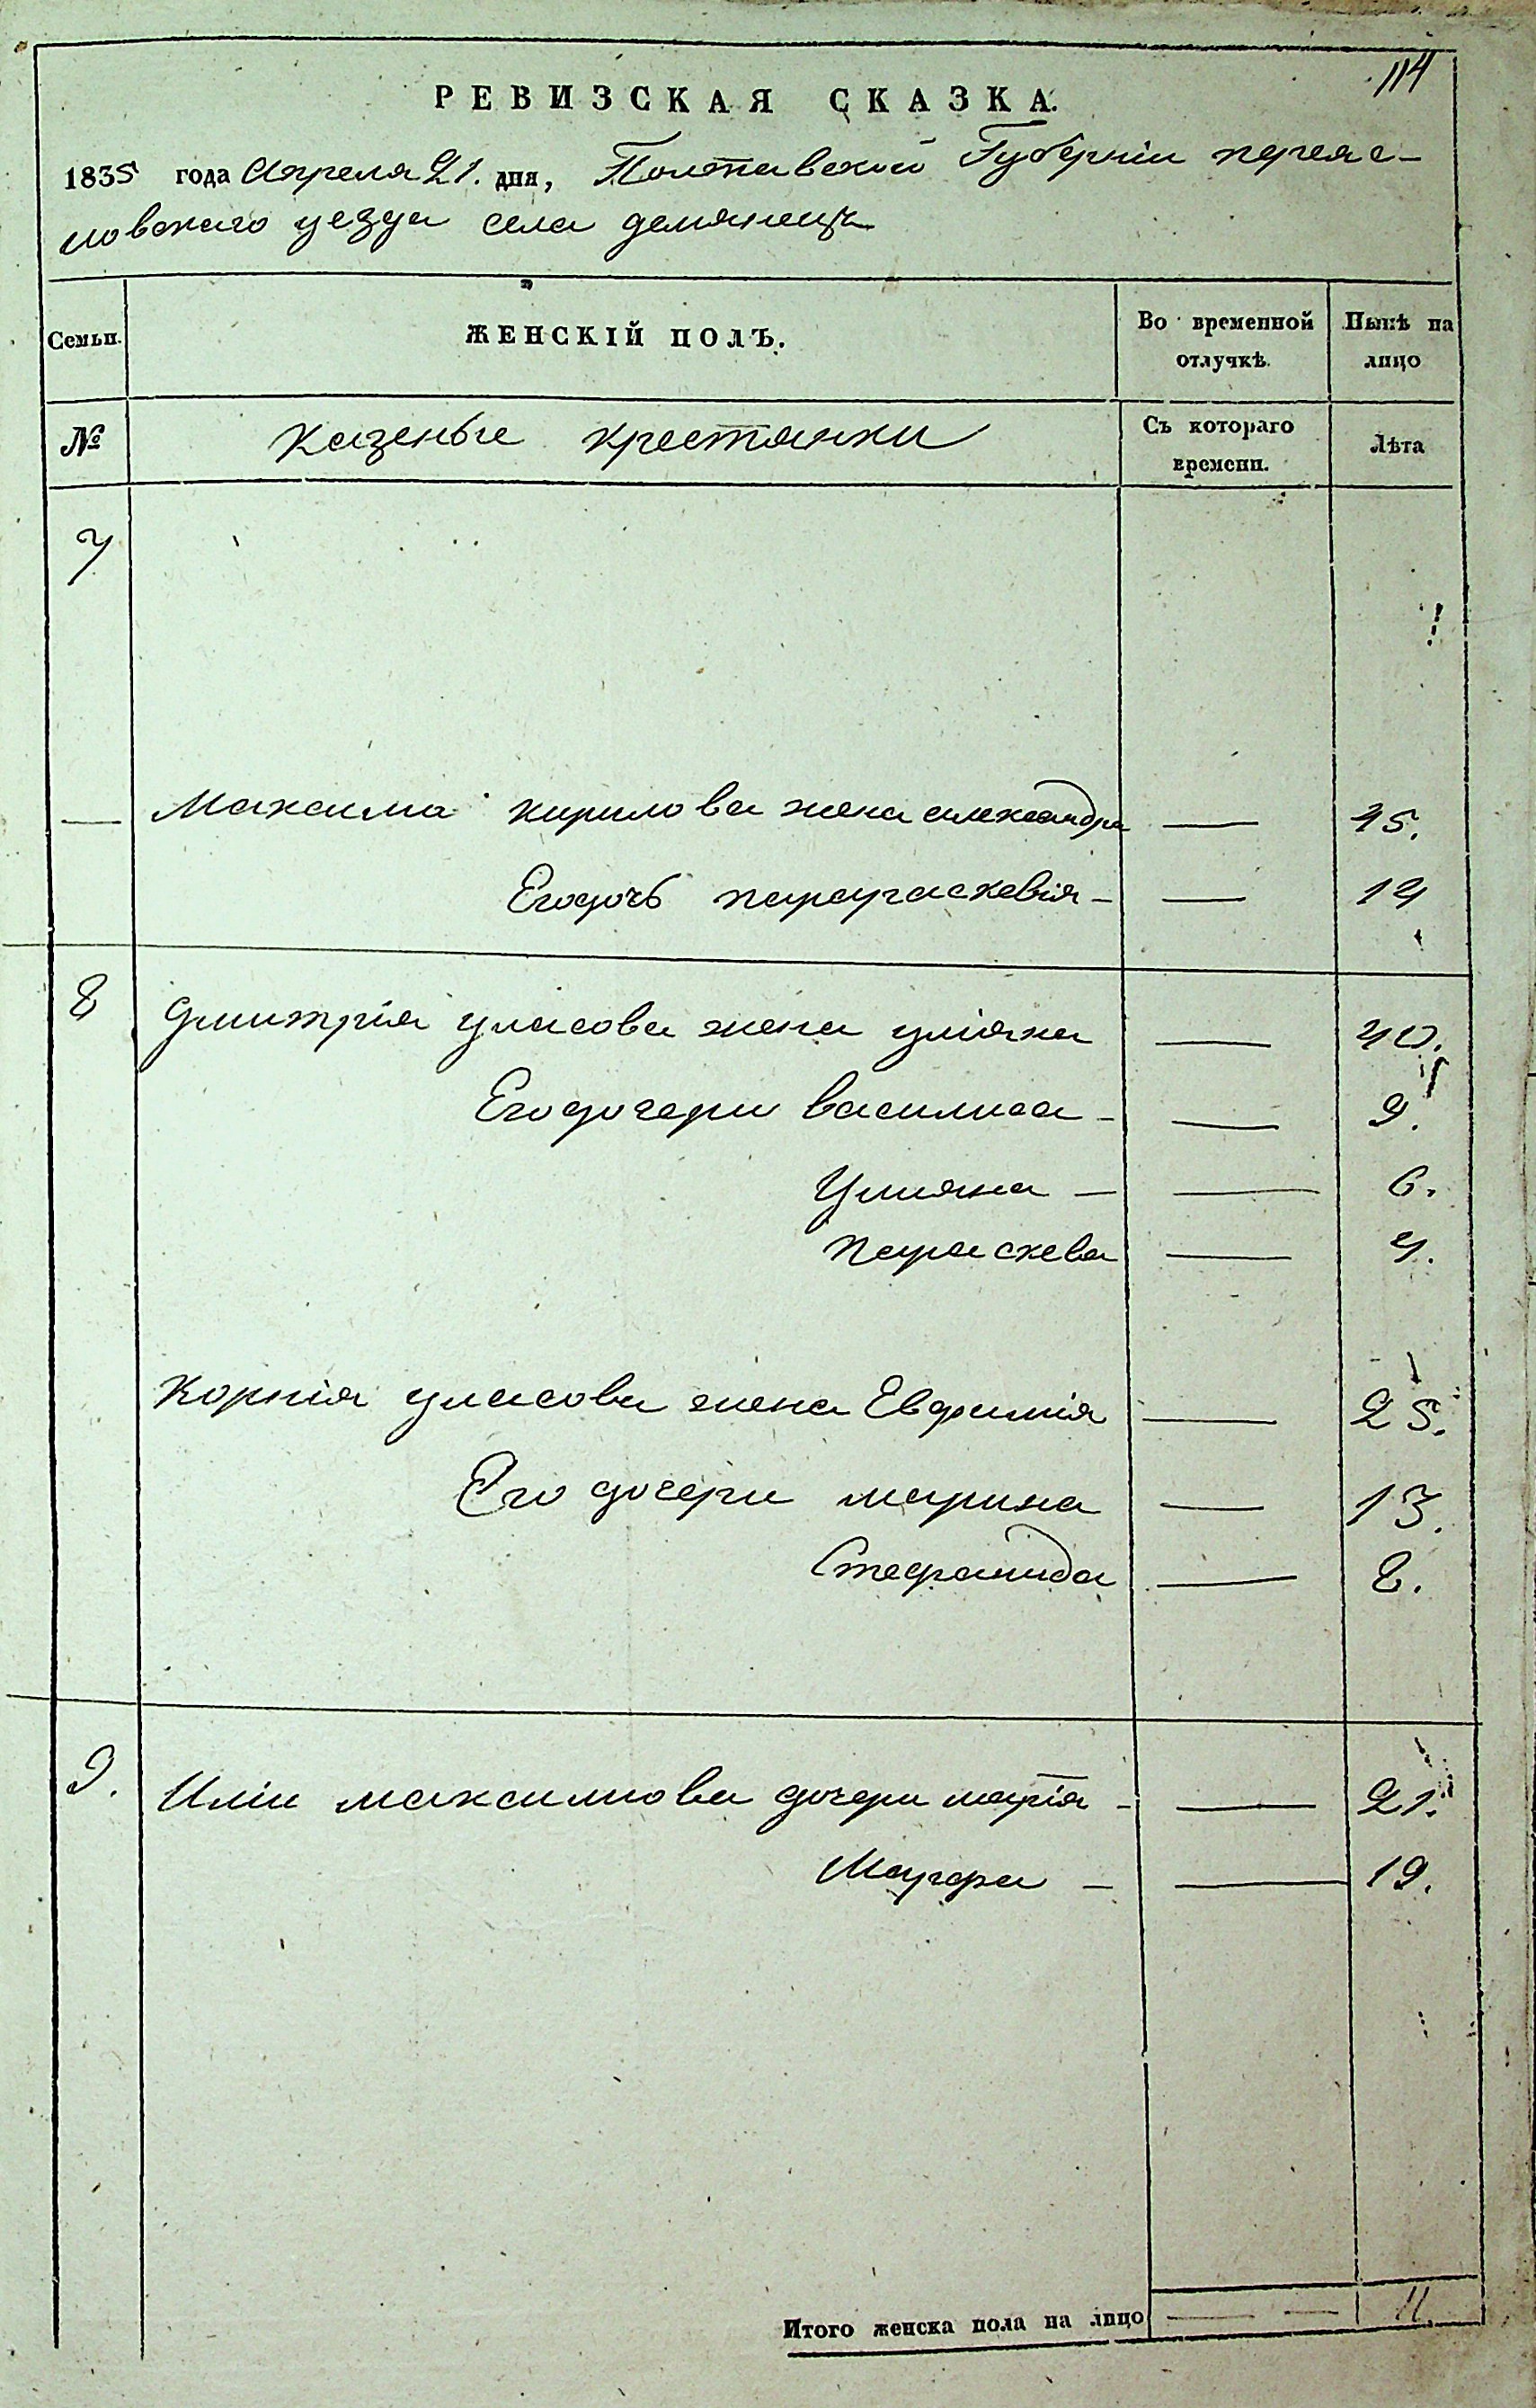 114
РЕВИЗСКАЯ СКАЗКА.
1835 года Апреля 21. дня, Полтавской Губерніи переяс-
ловского уезда села демянецъ
Семьи. ЖЕНСКІЙ ПОЛЪ. Во временной отлучкѣ. Нынѣ на лицо
№ Казеные крестянки Съ котораго времени. Лѣта
7
— Максима кирилова жена александра — 45.
Его дочь параскевія — — 14
8 Дмитрія уласова жена уліяна — 40.
Его дочери василиса — — 9.
Улияна — — 6.
параскева — 4.
Корнія уласова жена Евфимія — 25.
Его дочери марина — 13.
Стефанида — 8.
9. Иліи максимова дочери марія — — 21.
Мавра — — 19.
Итого женска пола на лицо — — 11.